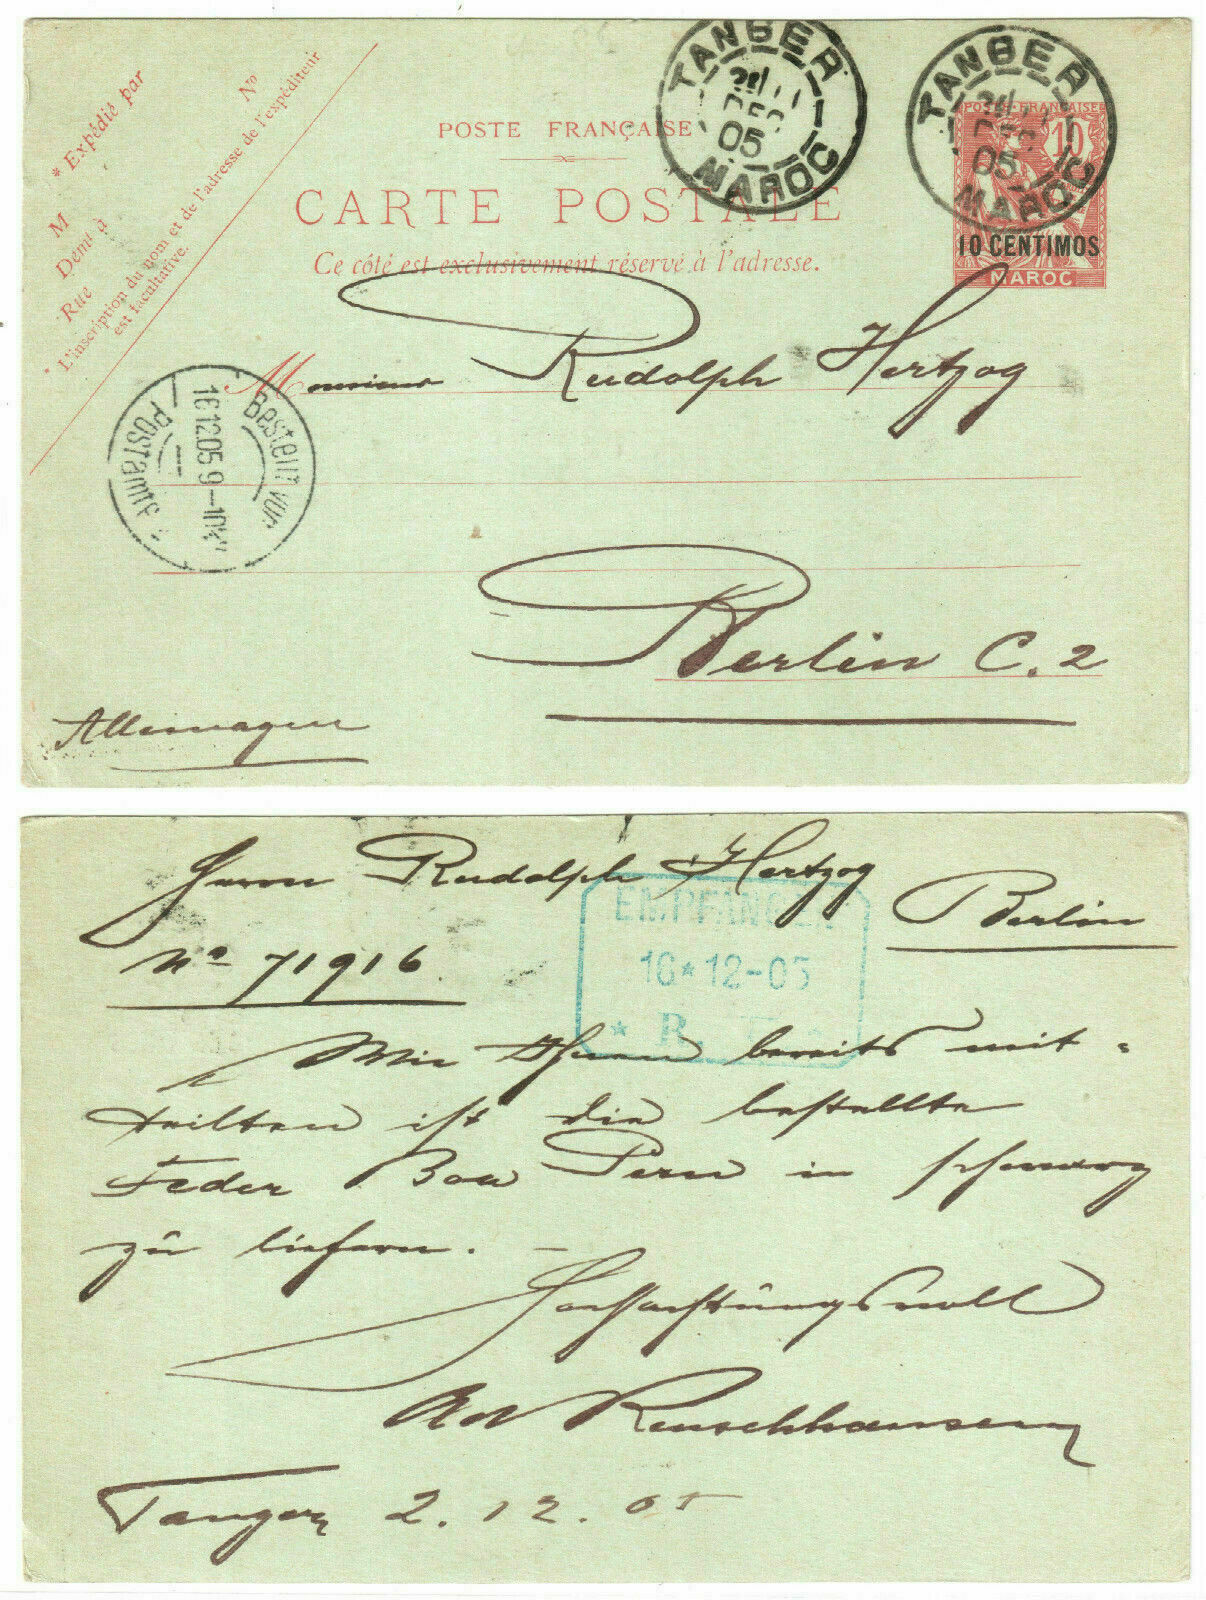 * Expédié par
M
Demt à
Rue
N°
* L'inscription du nom et de l'adresse de l'expéditeur
est facultative.
POSTE FRANÇAISE
CARTE POSTALE
Ce côté est exclusivement réservé à l'adresse.
TANGER
DEC
05
MAROC
TANGER
DEC
05
MAROC
POSTE FRANÇAISE
10
10 CENTIMOS
MAROC
Monsieur Rudolph Hertzog
Bestellt vom
16.12.05 9-10½V
Postamte
Berlin C. 2
Allemagne
Herrn Rudolph Hertzog
Berlin
No 71916
EMPFANGEN
16*12-05
* R.
Wie Ihnen bereits mit=
teilten ist die bestellte
Feder Boa Pern in schwarz
zu liefern. —
Hochachtungsvoll
Reuschhausen
Tanger 2.12.05